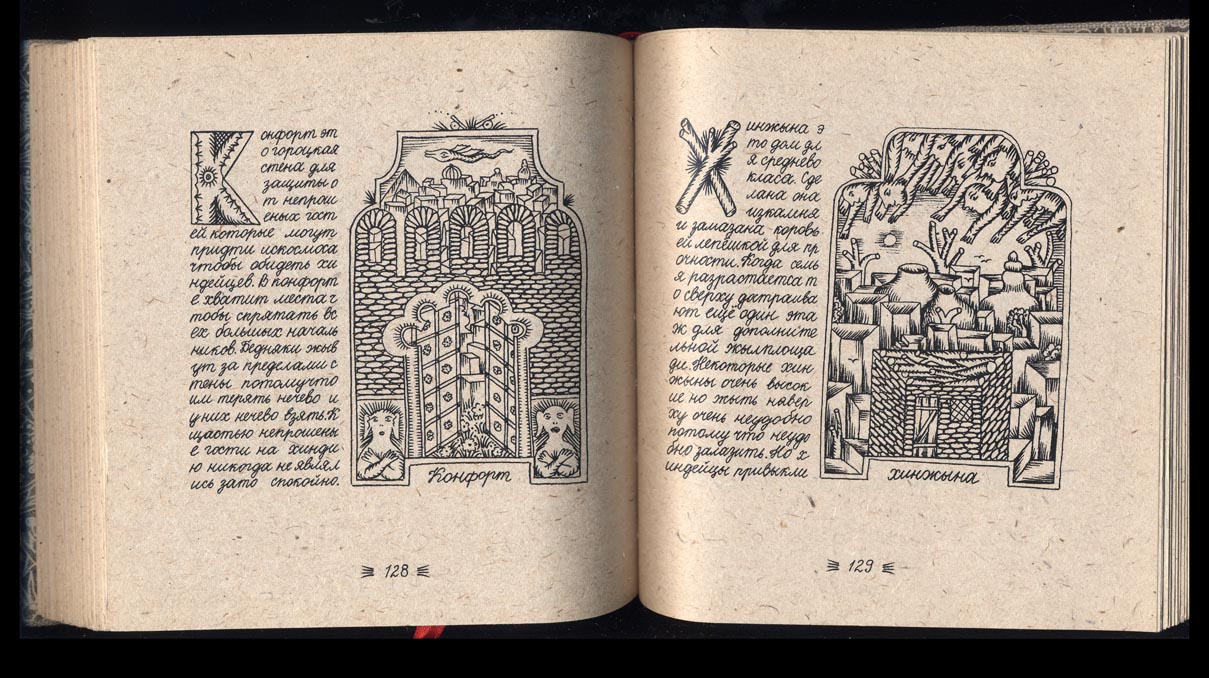 Конфорт эт
о гороцкая
стена для
защиты о
т непрош
еных гост
ей которые могут
придти искосмоса
чтобы обидеть хи
ндейцев. В конфорт
е хватит места ч
тобы спрятать вс
ех больших началь
ников. Бедняки жыв
ут за пределами с
тены потомучто
им терять нечево и
уних нечево взять. К
щастью непрошены
е гости на хинди
ю никогда не являл
ись зато спокойно.
Конфорт
128
Хинжына э
то дом дл
я среднево
класа. Сде
лана она
изкамня
и замазана коровь
ей лепёшкой для пр
очности. Когда семь
я разрастаеца т
о сверху датраива
ют ещё один эта
ж для дополните
льной жылплоща
ди. Некоторые хин
жыны очень высок
ие но жыть навер
ху очень неудобно
потому что неудо
бно залазить. Но х
индейцы привыкли
хинжына
129